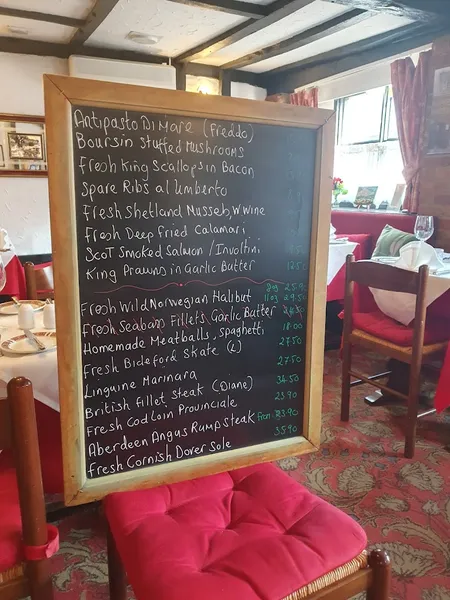 Antipasto Di Mare (Freddo)
Boursin Stuffed Mushrooms
Fresh King Scallops in Bacon
Spare Ribs al Umberto
Fresh Shetland Mussels, W Wine
Fresh Deep Fried Calamari
Scot Smoked Salmon / Involtini
King Prawns in Garlic Butter 12.50
Fresh Wild Norwegian Halibut
Fresh Seabass Fillets Garlic Butter
Homemade Meatballs, Spaghetti 18.00
Fresh Bideford Skate (L) 27.50
Linguine Marinara 27.50
British Fillet Steak (Diane) 34.50
Fresh Cod Loin Provinciale 23.90
Aberdeen Angus Rump Steak From 23.90
Fresh Cornish Dover Sole 35.90